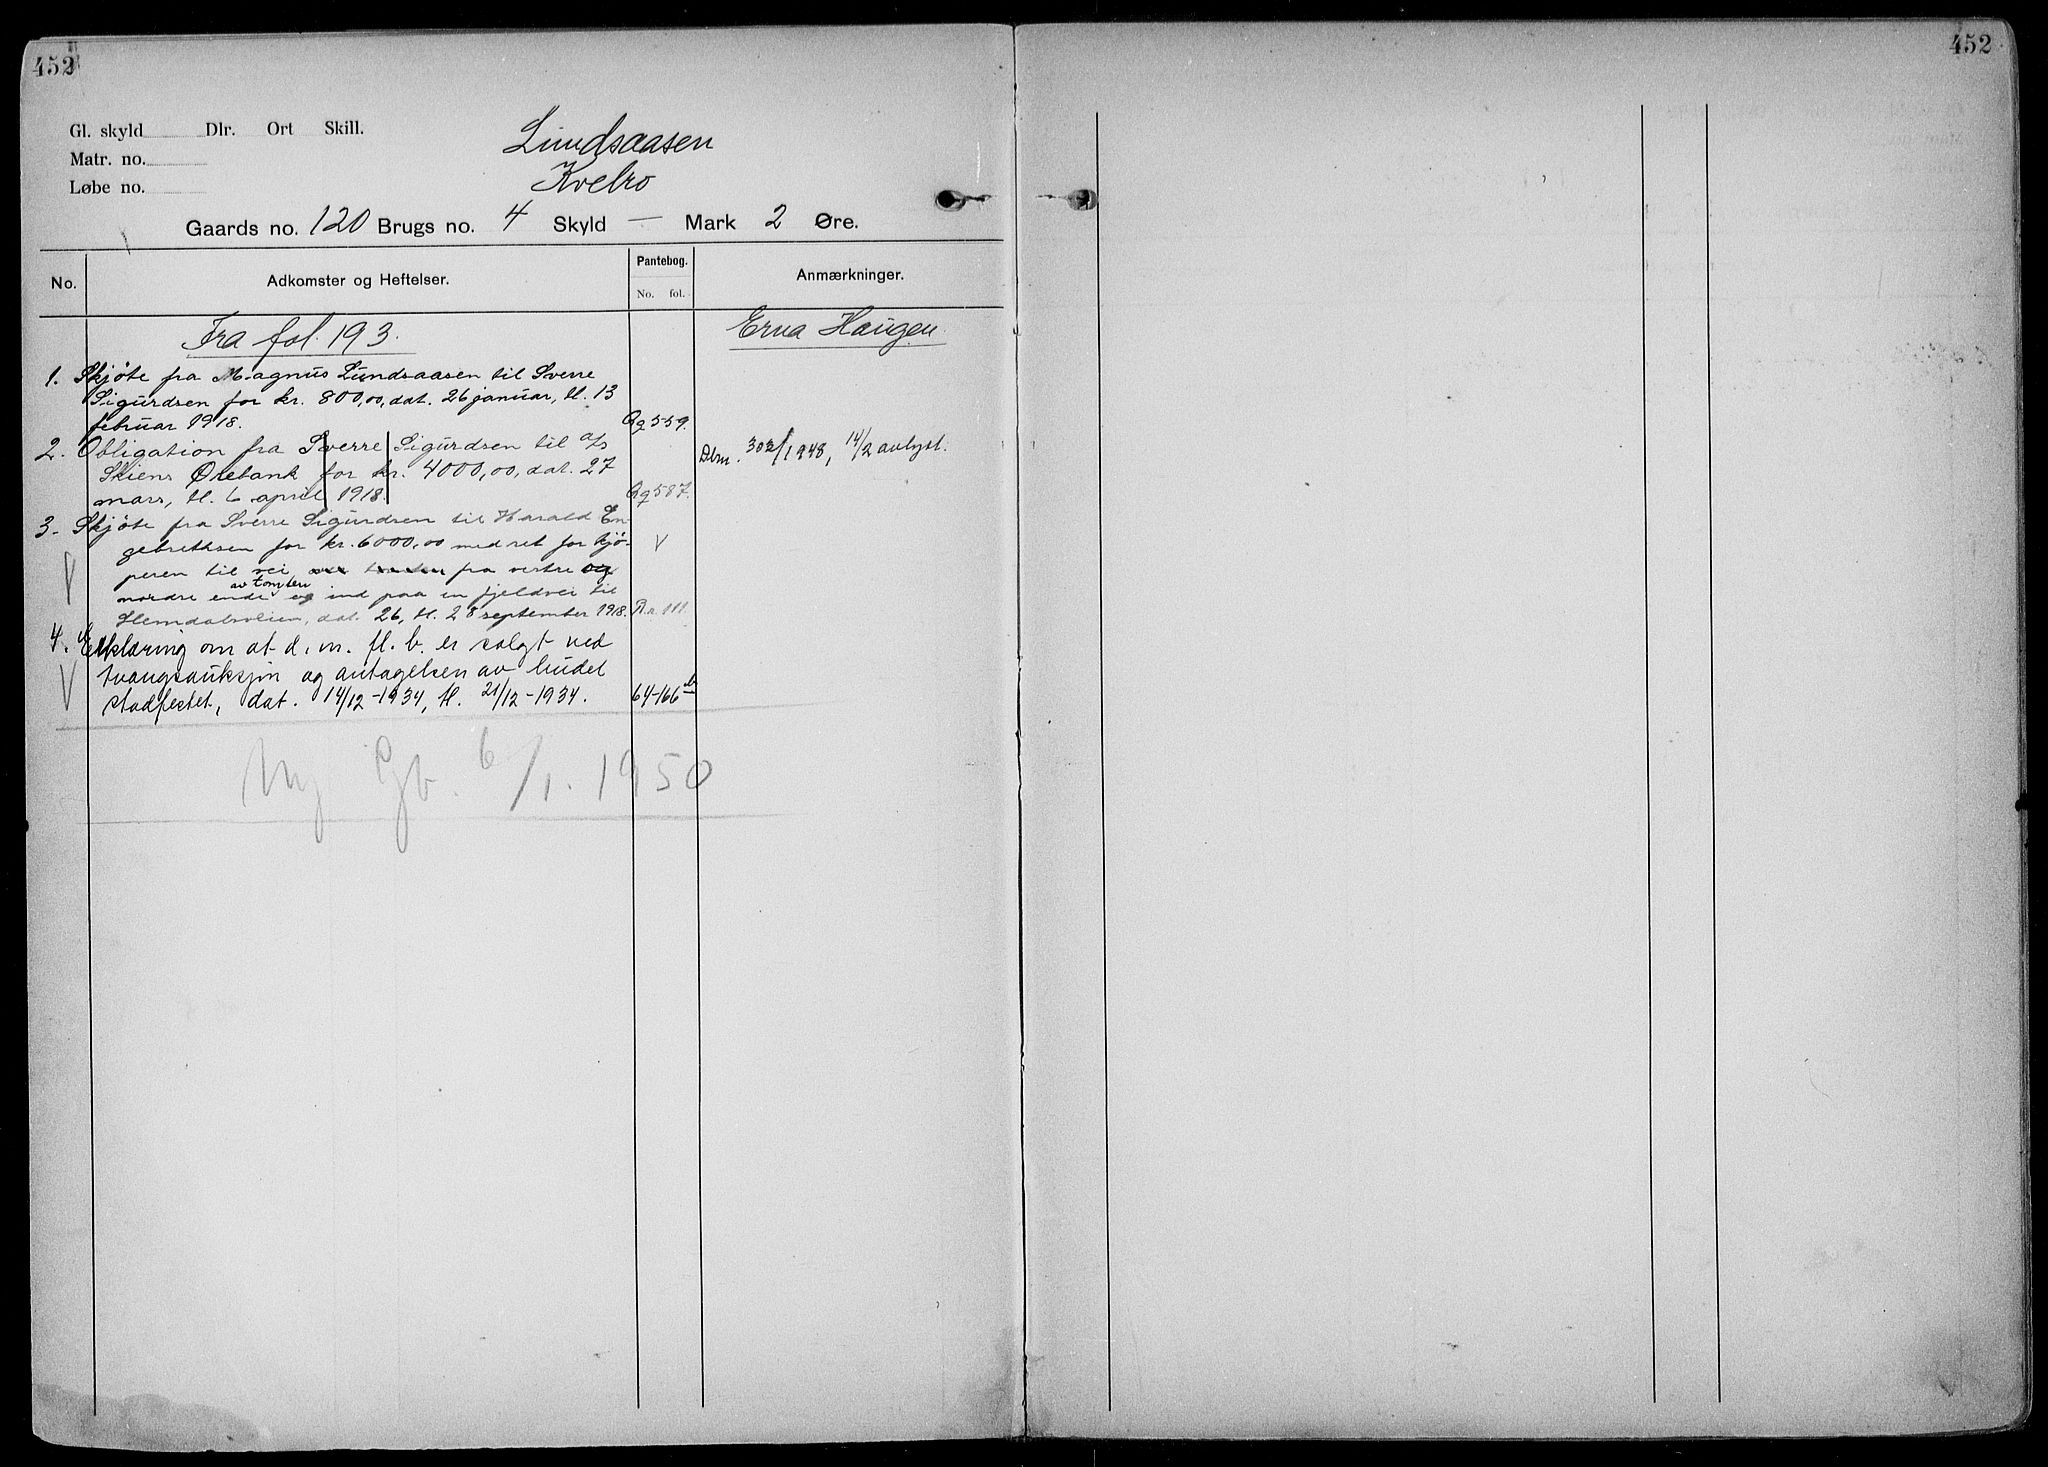 452
452
Gl. skyld Dlr. Ort Skill.
Matr. no.
Løbe no.
Lundsaasen
Kvelro
Gaards no. 120 Brugs no. 4 Skyld — Mark 2 Øre.
No. Adkomster og Heftelser. Pantebog. Anmærkninger.
No. fol.
Fra fol. 193. Erna Haugen
1. Skjøte fra Magnus Lundsaasen til Sverre
Sigurdsen for kr. 800,00, dat. 26 januar, tl. 13
februar 1918. Qq 559.
2. Obligation fra Sverre Sigurdsen til a/s
Skiens Ørebank for kr. 4000,00, dat. 27
mars, tl. 6 april 1918. Qq 587.
Dbnr. 302/1948, 14/2 avlyst.
3. Skjøte fra Sverre Sigurdsen til Harald En-
gebrethsen for kr. 6000,00 med ret for kjø-
peren til vei fra vestre og
av tomten
nordre ende og ind paa en fjeldvei til
Hemdalsveien, dat. 26, tl. 28 september 1918. R.r. 111.
4. Erklæring om at d. m. fl. b. er solgt ved
tvangsauksjon og antagelsen av budet
stadfestet, dat. 14/12-1934, tl. 21/12-1934. 64-166
Ny Gb. 6/1. 1950